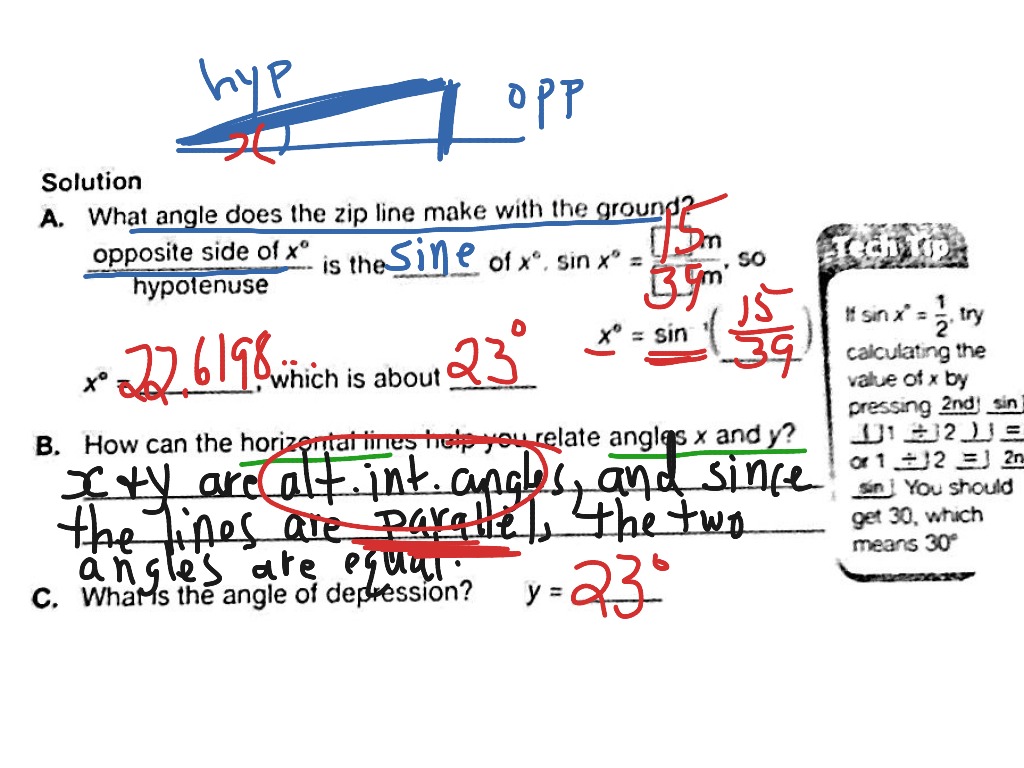 hyp
opp
x
Solution
A. What angle does the zip line make with the ground?
opposite side of x° / hypotenuse is the sine of x°. sin x° = 15 m / 39 m, so
x° = sin⁻¹ ( 15 / 39 )
x° = 22.6198..., which is about 23°
B. How can the horizontal lines help you relate angles x and y?
x + y are alt. int. angles, and since
the lines are parallel, the two
angles are equal.
C. What is the angle of depression? y = 23°
Tech Tip
If sin x° = 1/2, try
calculating the
value of x by
pressing 2nd sin
( 1 ÷ 2 ) =
or 1 ÷ 2 = 2n
sin. You should
get 30, which
means 30°